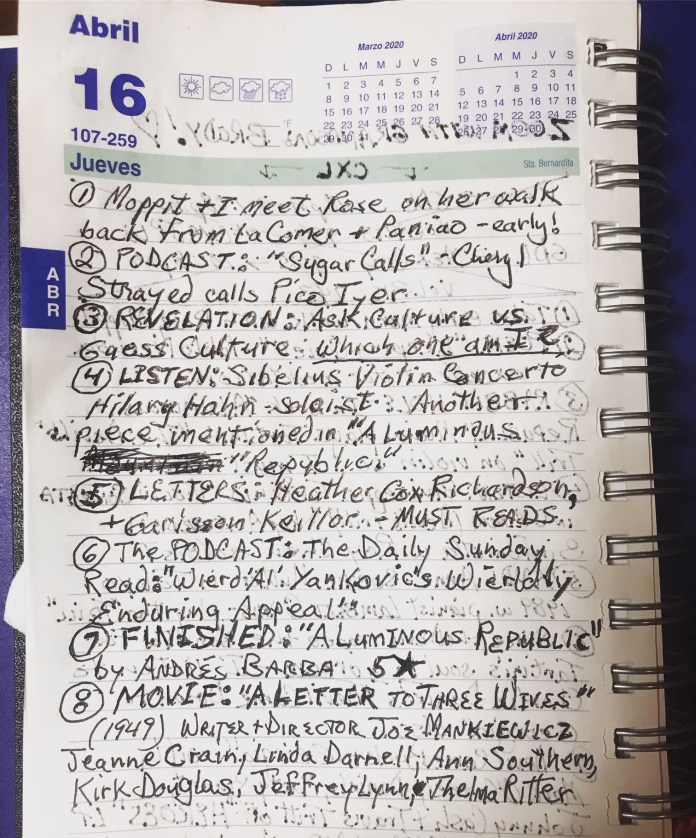 Abril
16
107-259
Jueves
Marzo 2020
D L M M J V S
1 2 3 4 5 6 7
8 9 10 11 12 13 14
15 16 17 18 19 20 21
22 23 24 25 26 27 28
29 30 31
Abril 2020
D L M M J V S
1 2 3 4
5 6 7 8 9 10 11
12 13 14 15 16 17 18
19 20 21 22 23 24 25
26 27 28 29 30
Sta. Bernardita
ABR
① Moppit + I meet Rose on her walk
back from LaComer + Paniao - early!
② PODCAST: "Sugar Calls" - Cheryl
Strayed calls Pico Iyer.
③ REVELATION: Ask Culture vs.
Guess Culture: Which one am I?
④ LISTEN: Sibelius Violin Concerto
Hilary Hahn - soloist: Another
piece mentioned in "A Luminous
"Republic"
⑤ LETTERS: Heather Cox Richardson,
+ Garisson Keillor - MUST READS.
⑥ The PODCAST: The Daily Sunday
Read: "Wierd 'Al' Yankovic's Wierdly
Enduring Appeal"
⑦ FINISHED: "A LUMINOUS REPUBLIC"
by ANDRÉS BARBA 5★
⑧ MOVIE: "A LETTER TO THREE WIVES"
(1949) WRITER + DIRECTOR JOE MANKIEWICZ
Jeanne Crain, Linda Darnell, Ann Southern,
Kirk Douglas, Jeffrey Lynn, Thelma Ritter